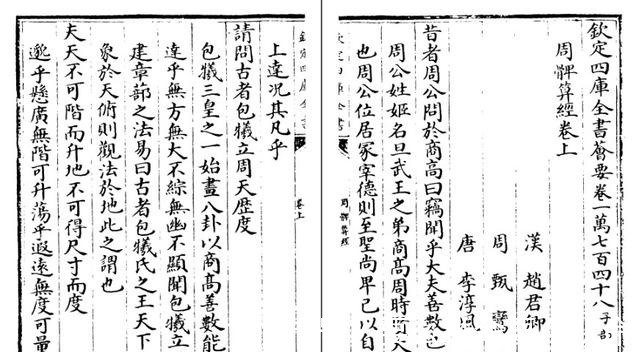 欽定四庫全書薈要卷一萬七百四十八子部
周髀算經卷上
漢趙君卿
周甄鸞
唐李淳風
昔者周公問於商高曰竊聞乎大夫善數也
周公姓姬名旦武王之弟商高周時
也周公位居冢宰德則至聖尚卑己以自
周髀算經
欽定四庫全書
卷上
上達況其凡乎
請問古者包犧立周天歷度
包犧三皇之一始畫八卦以商高善數能
達乎無方無大不綜無幽不顯聞包犧立
建章蔀之法易曰古者包犧氏之王天下
象於天俯則觀法於地此之謂也
夫天不可階而升地不可得尺寸而度
邈乎懸廣無階可升蕩乎遐遠無度可量